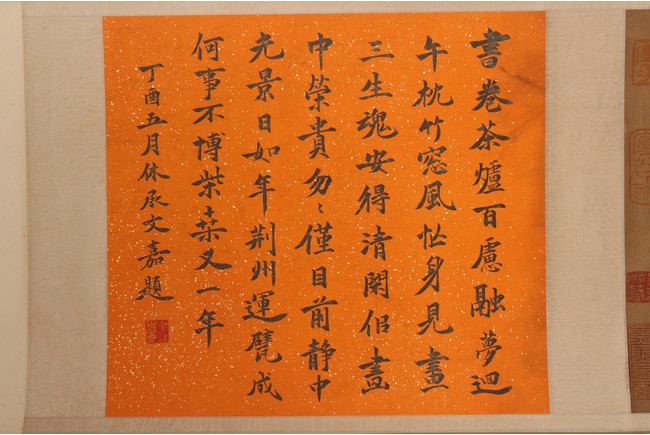 書卷茶爐百慮融夢迴
午枕竹窓風忙身見畫
三生魂安得清閑佀畫
中榮貴勿〻僅目前静中
光景日如年荆州運甓成
何事不博柴桒又一年
丁酉五月休承文嘉題